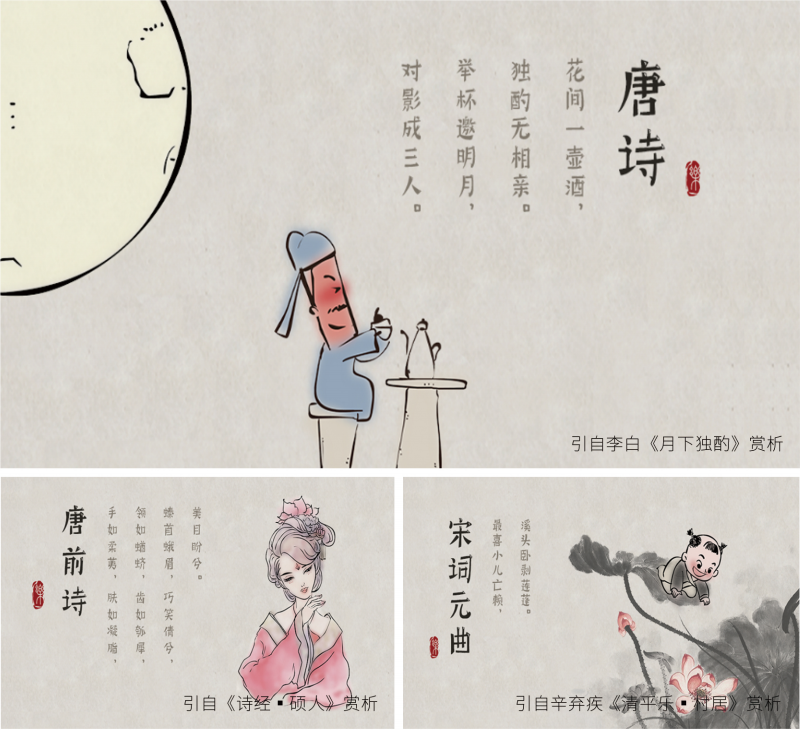 唐诗
花间一壶酒，
独酌无相亲。
举杯邀明月，
对影成三人。
引自李白《月下独酌》赏析
唐前诗
美目盼兮。
螓首蛾眉，巧笑倩兮，
领如蝤蛴，齿如瓠犀，
手如柔荑，肤如凝脂，
引自《诗经▪硕人》赏析
宋词元曲
溪头卧剥莲蓬。
最喜小儿亡赖，
引自辛弃疾《清平乐▪村居》赏析